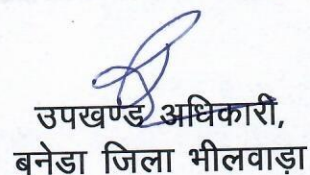 उपखण्ड अधिकारी,
बनेडा जिला भीलवाड़ा